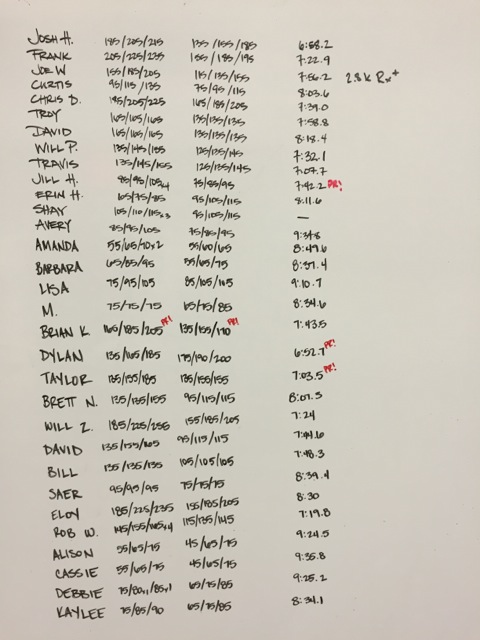 JOSH H. 185/205/215 135/155/185 6:58.2
FRANK 205/225/235 155/185/195 7:22.9
JOE W 155/185/205 115/135/155 7:56.2 2.8K Rx+
CURTIS 95/115/135 75/95/115 8:03.6
CHRIS D. 185/205/225 165/185/205 7:39.0
TROY 165/165/165 135/135/135 7:58.8
DAVID 165/165/165 135/135/135 8:18.4
WILL P. 135/145/155 125/135/145 7:32.1
TRAVIS 135/145/155 125/135/145 7:07.7
JILL H. 85/95/105x4 75/85/95 7:42.2 PR!
ERIN H. 65/75/85 95/105/115 8:11.6
SHAY 105/110/115x3 95/105/115 —
AVERY 85/95/105 75/85/95 9:34.8
AMANDA 55/65/70x2 55/60/65 8:49.6
BARBARA 65/85/95 55/65/75 8:37.4
LISA 75/95/105 85/105/115 9:10.7
M. 75/75/75 65/75/85 8:34.6
BRIAN K 165/185/205 PR! 135/155/170 PR! 7:43.5
DYLAN 135/165/185 175/190/200 6:52.7 PR!
TAYLOR 135/155/185 135/155/155 7:03.5 PR!
BRETT N. 135/135/155 95/115/115 8:07.3
WILL Z. 185/225/255 155/185/205 7:24
DAVID 135/155/165 95/115/115 7:44.6
BILL 135/135/135 105/105/105 7:48.3
SAER 95/95/95 75/75/75 8:39.4
ELOY 185/225/235 155/185/205 8:30
ROB W. 145/155/165x4 115/135/145 7:19.8
ALISON 55/65/75 45/65/75 9:24.5
CASSIE 55/65/75 45/65/75 9:35.8
DEBBIE 75/80x1/85x1 65/75/85 9:25.2
KAYLEE 75/85/90 65/75/85 8:34.1